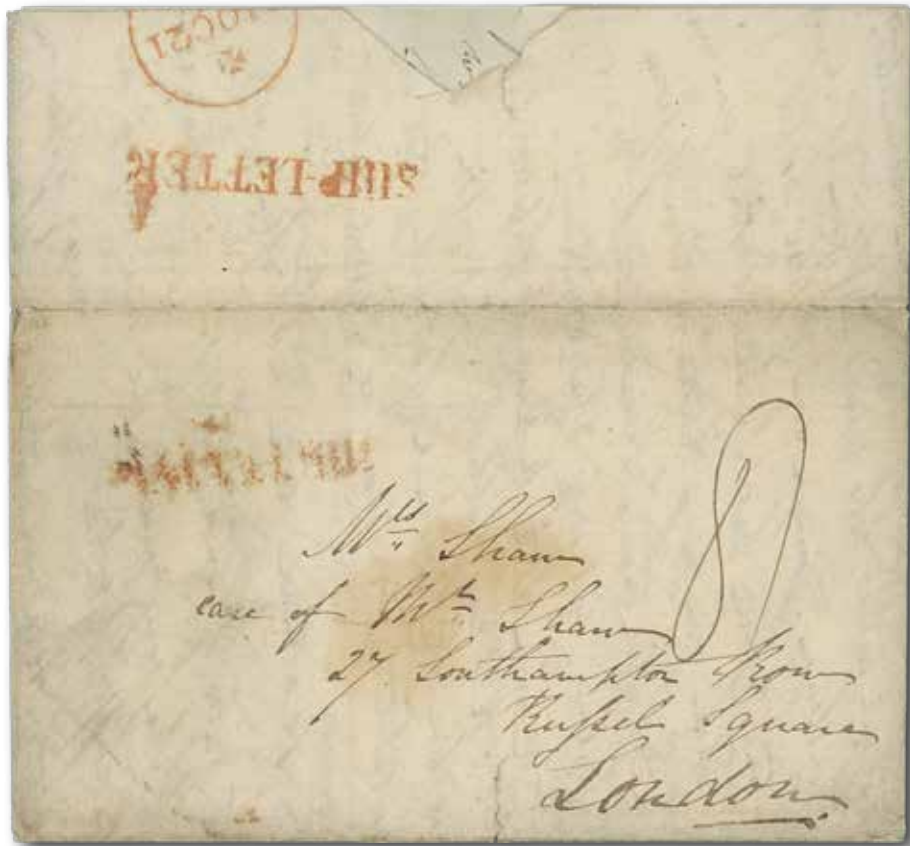 1OC21
SHIP-LETTER
Mrs Shaw
care of Mr Shaw
8
27 Southampton Row
Russel Square
London